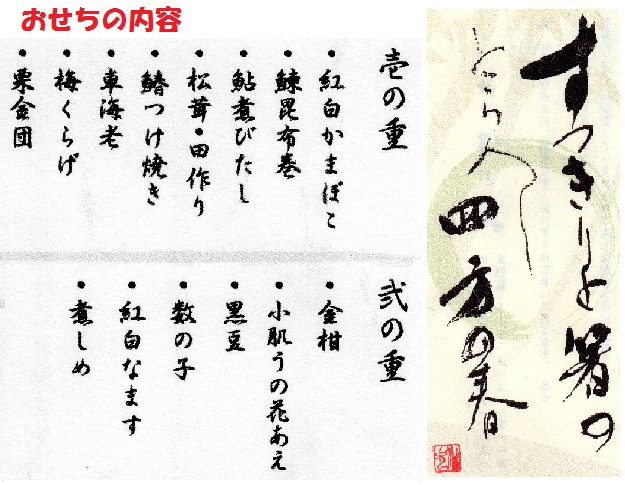 おせちの内容
すつきりと箸の
とらへし四方の春
壱の重
・紅白かまぼこ
・鰊昆布巻
・鮎煮びたし
・松茸・田作り
・鰆つけ焼き
・車海老
・梅くらげ
・栗金団
弐の重
・金柑
・小肌うの花あえ
・黒豆
・数の子
・紅白なます
・煮しめ